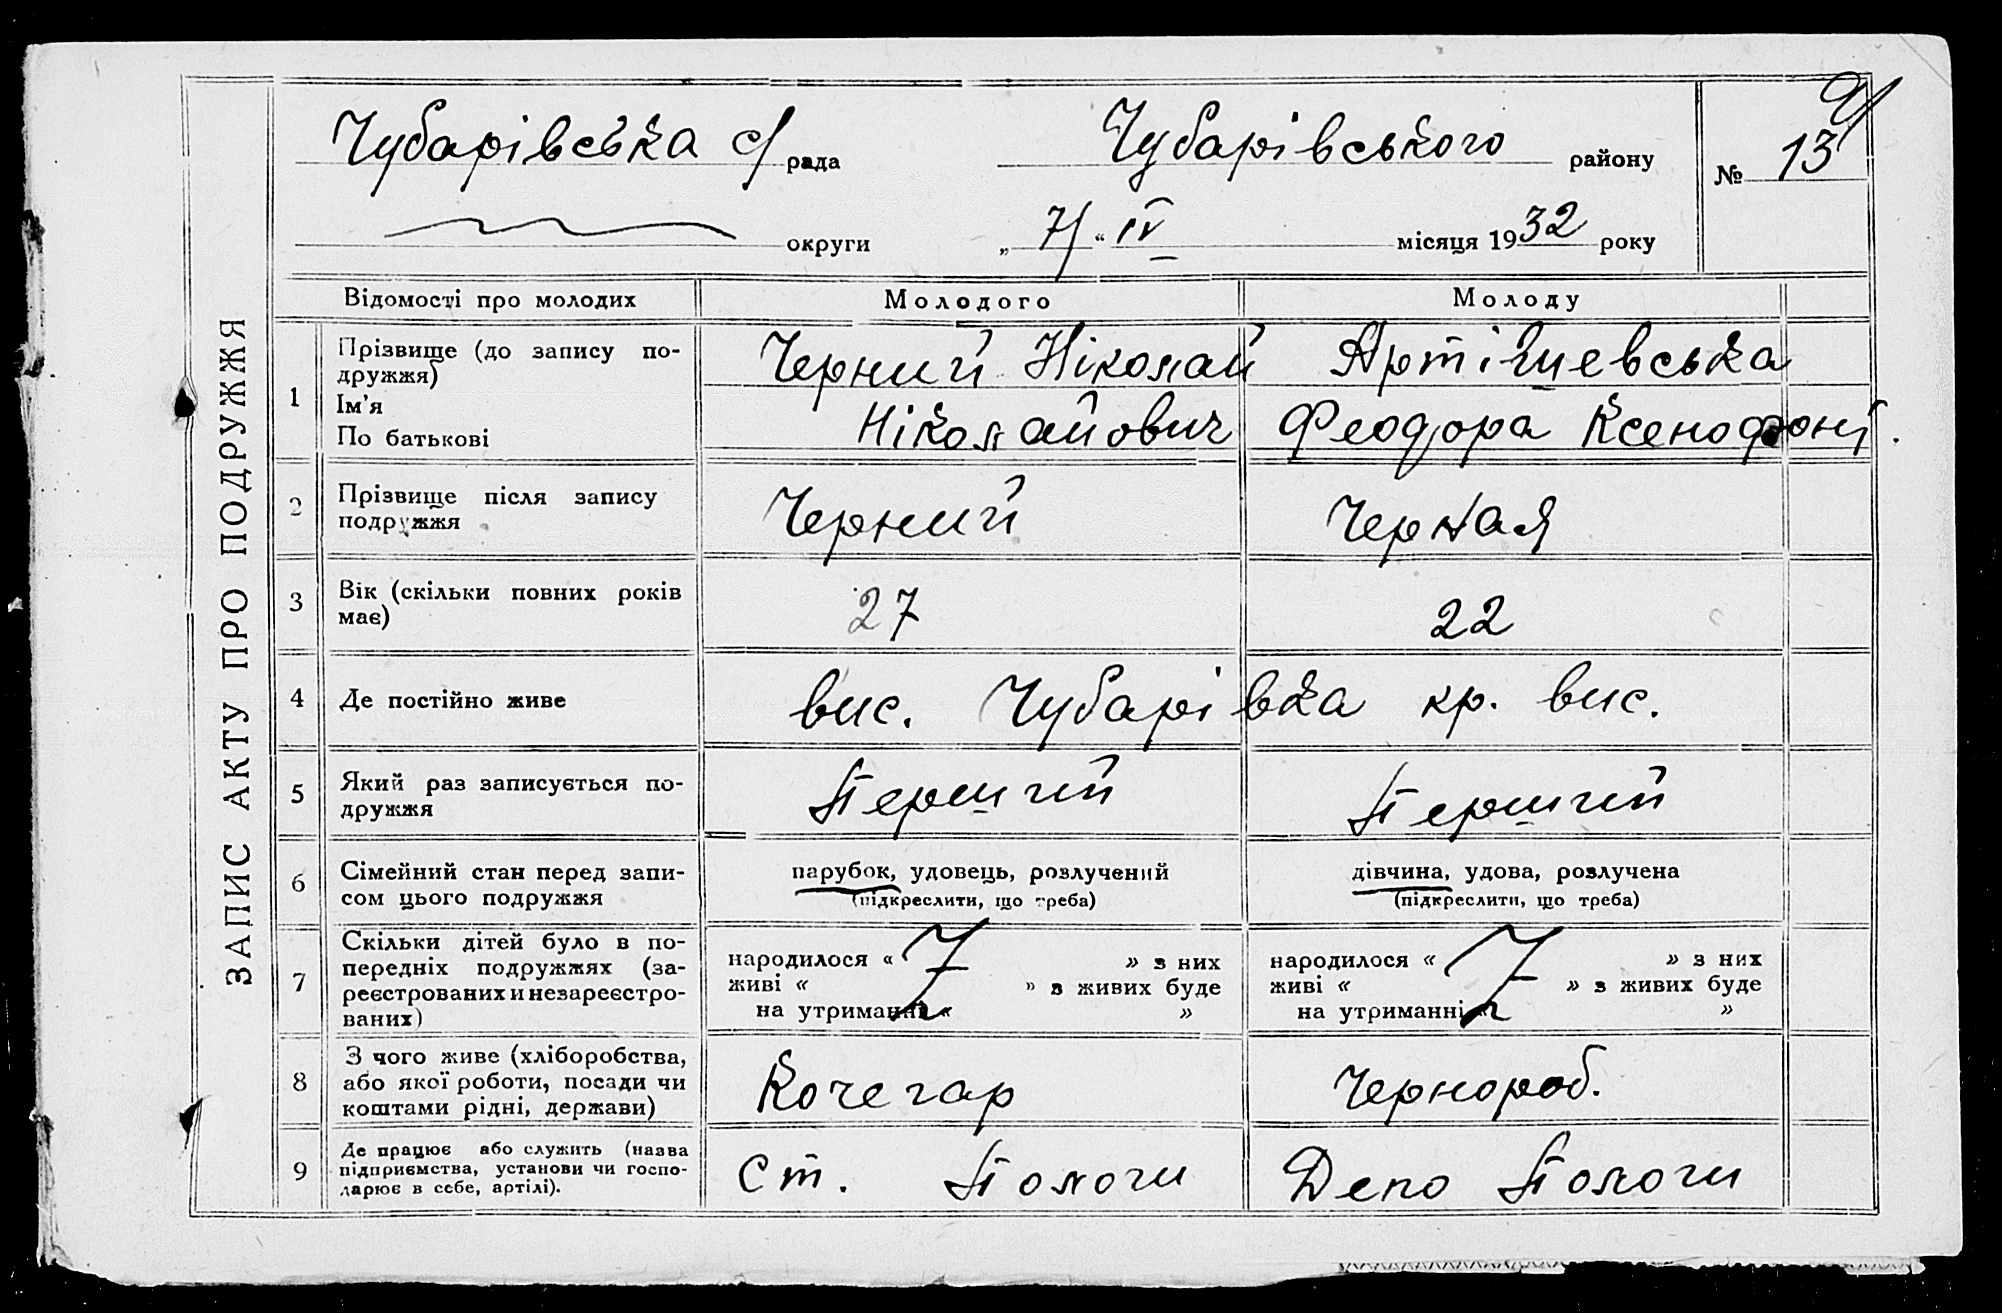 ЗАПИС АКТУ ПРО ПОДРУЖЖЯ
Чубарівська с/рада Чубарівського району № 13
округи „7/“ IV місяця 1932 року
Відомості про молодих Молодого Молоду
1 Прізвище (до запису по-
дружжя)
Ім'я
По батькові
Черний Ніколай
Ніколайович
Артішевська
Феодора Ксенофонт.
2 Прізвище після запису
подружжя
Черний Черная
3 Вік (скільки повних років
має)
27 22
4 Де постійно живе вис. Чубарівка кр. вис.
5 Який раз записується по-
дружжя
Перший Перший
6 Сімейний стан перед запи-
сом цього подружжя
парубок, удовець, розлучений
(підкреслити, що треба)
дівчина, удова, розлучена
(підкреслити, що треба)
7 Скільки дітей було в по-
передніх подружжях (за-
реєстрованих и незареєстро-
ваних)
народилося « » з них
живі « » з живих буде
на утриманні « »
народилося « » з них
живі « » з живих буде
на утриманні « »
8 З чого живе (хліборобства,
або якої роботи, посади чи
коштами рідні, держави)
Кочегар Чернороб.
9 Де працює або служить (назва
підприємства, установи чи госпо-
дарює в себе, артілі).
Ст. Пологи Депо Пологи